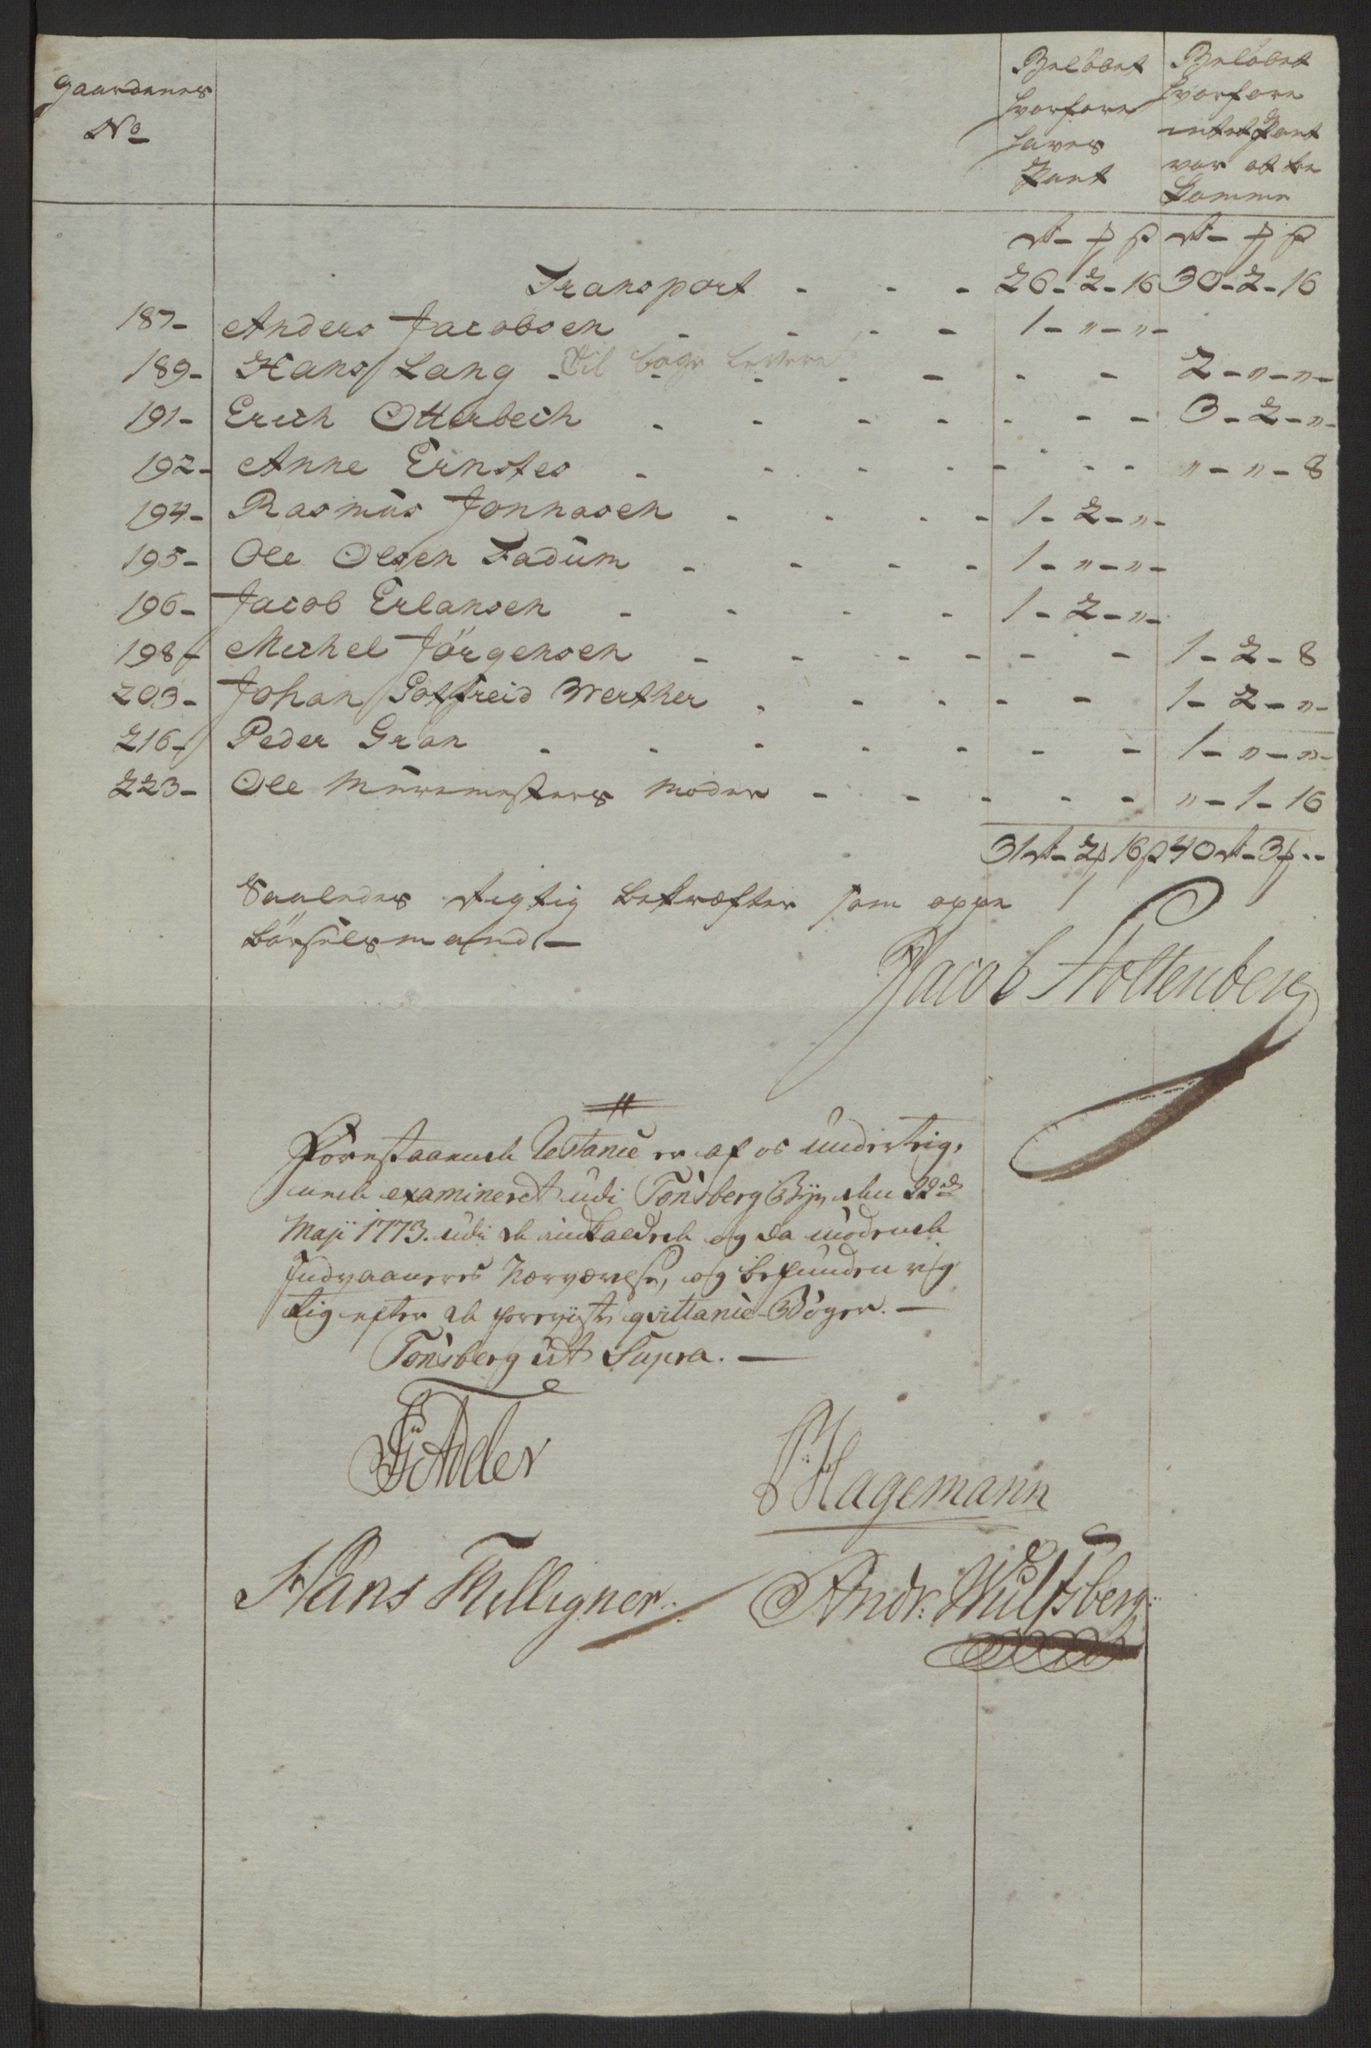 Gaardenes No
Beløbet hvorfore haves Pant
Beløbet hvorfore intet Pant var at be komme
rd - ß rd - ß
Transport - - - 26-2-16 30-2-16
187- Anders Jacobsen - - - - 1-"-"-
189- Hans Lang - til bage levere - - - - - 2-"-"-
191- Erich Otterbech - - - - - - - 3-2-"-
192- Anne Ernstes - - - - - - - "-"-8
194- Rasmus Jonnasen - - - - 1-2-"-
195- Ole Olsen Fadum - - - - 1-"-"-
196- Jacob Erlansen - - - - 1-2-"-
198- Michel Jörgensen - - - - - - 1-2-8
203- Johan Gotfreid Werther - - - - - 1-2-"-
216- Peder Gran - - - - - - - 1-"-"-
223- Ole Muremesters Moder - - - - - "-1-16
31 rd-2-16 ß 40 rd-3-"
Saaledes rigtig bekræfter som oppe
börselsmand -
Jacob Stoltenberg
Forestaaende Restance er af os underteig,
nede examineret udi Tönsberg Bye den 22de
Maji 1773. udi de indkaldede og da mödende
Indvaaneres Nærværelse, og befunden rig
tig efter de foreviste qvittanie-Böger. -
Tönsberg ut Supra. -
Adler
Hagemann
Hans Milligner.
Andr: Wulfsberg: